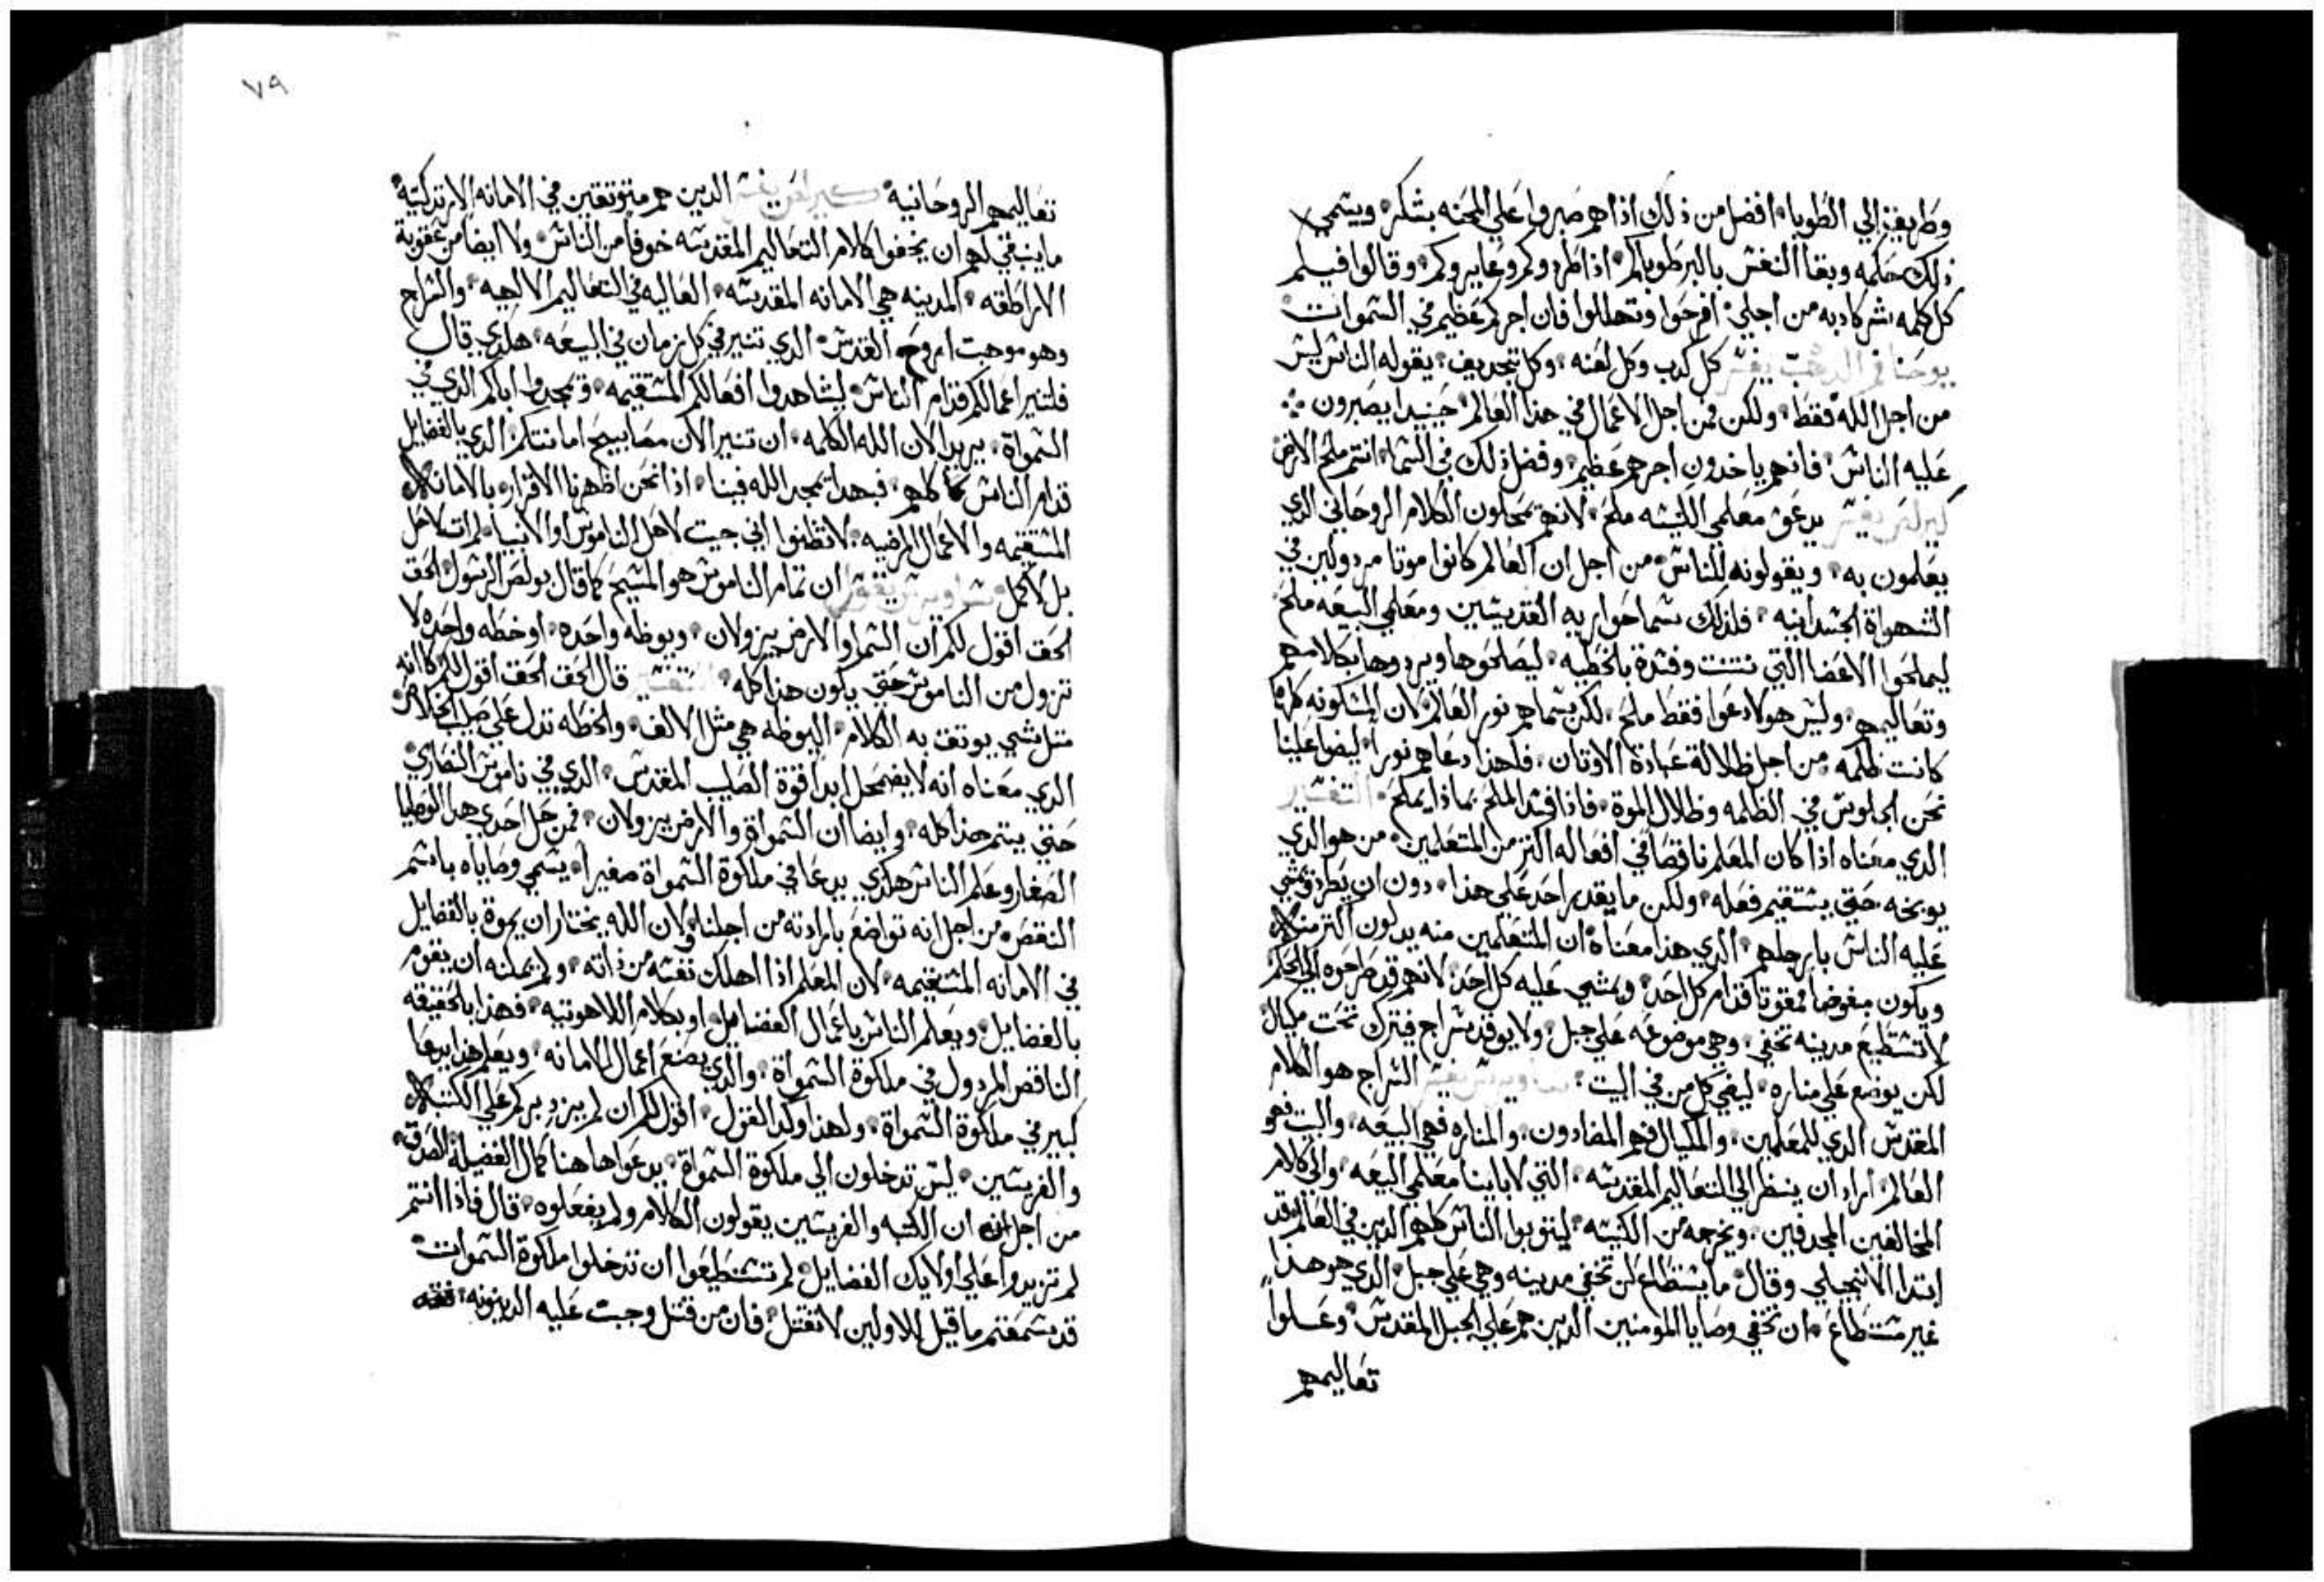 وطرايفز الي الطوبا افضل من ذلك اذا هم صبروا علي المحنه بشكر ويسمي
ذلك حكمه وبقا النفس بالبر طوباكم اذا طردوكم وعايروكم وقالوا فيكم
كل كلمه شر كادبه من اجلي افرحوا وتهللوا فان اجركم عظيم في السموات
يوحنا فم الدهب يفسر كل كدب وكل لعنه وكل تجديف يقوله الناس ليس
من اجل الله فقط ولكن فمن اجل الاعمال في هذا العالم حينيدا يصبرون
عليه الناس فانهم ياخدون اجرهم عظيم وفضل ذلك في السما انتم ملح الارض
كيرلس يفسر يدعو معلمي الكنيسه ملح لانهم يحملون الكلام الروحاني الدي
يعلمون به ويقولونه للناس من اجل ان العالم كانوا موتا مردولين في
الشهواة الجسدانيه فلذلك سما حواريه القديسين ومعلمي البيعه ملح
ليملحوا الاعضا التي نتنت وفسدة بالخطيه ليصلحوها ويردوها بكلامهم
وتعاليمهم وليس هولا دعوا فقط ملح لكن سماهم نور العالم لان المسكونه كلها
كانت ظلمه من اجل ظلالة عبادة الاوتان فلهذا دعاهم نورا ليضوا علينا
نحن الجلوس في الظلمه وظلال الموة فاذا فسد الملح بماذا يملح التفسير
الدي معناه اذا كان المعلم ناقصا في افعاله اكتر من المتعلمين من هو الدي
يوبخه حتي يستقيم فعله ولكن ما يقدر احد علي هذا دون ان يطرد وتمشي
عليه الناس بارجلهم الدي هذا معناه ان المتعلمين منه يدلون اكتر منه
ويكون مبغوضا ممقوتا قدام كل احد ويمشي عليه كل احد لانهم قد طرحوه الي الحكم
لا تستطيع مدينه تخفي وهي موضوعه علي جبل ولا يوقد سراج فيترك تحت مكيال
لكن يوضع علي مناره ليضي كل من في البيت ساويرس يفسر السراج هو الكلام
المقدس الدي للمعلمين والمكيال فهم المضادون والمناره فهي البيعه والبيت فهو
العالم اراد ان ينظر الي التعاليم المقدسه التي لاباينا معلمي البيعه والي كلام
المخالفين المجدفين ويخرجه من الكنيسه ليتوبوا الناس كلهم الدين في العالم وقد
ابتدا الانجيلي وقال ما يستطاع ان تخفي مدينه وهي علي جبل الدي هو هذا
غير مستطاع ان تخفي وصايا المومنين الدين هم علي الجبل المقدس وعملوا
تعاليمهم
٧٩
تعاليمهم الروحانيه كيرلس يفسر الدين هم متوتقين في الامانه الارتدكسية
ما ينبغي لهم ان يخفوا كلام التعاليم المقدسه خوفا من الناس ولا ايضا من عقوبة
الاراطقه المدينه هي الامانه المقدسه العاليه في التعاليم الالهيه والسراج
وهو موهبت الروح القدس الدي تنير في كل زمان في البيعه هكدي قال
فلتنير اعمالكم قدام الناس ليشاهدوا افعالكم المستقيمه ويمجدوا اباكم الدي في
السمواة يريد الان الله الكلمه ان تنير الان مصابيح امانتكم الدي بالفضايل
قدام الناس كلهم فبهدا يمجد الله فينا اذا نحن اظهرنا الاقرار بالامانه
المستقيمه والاعمال المرضيه لا تظنوا اني جيت لاحل الناموس او الانبيا لم ات لاحل
بل لاكمل ساويرس يفسر ان تمام الناموس هو المسيح كما قال بولص الرسول الحق
الحق اقول لكم ان السما والارض يزولان ويوطه واحده او خطه واحده لا
تزول من الناموس حتي يكون هذا كله التفسير قال الحق الحق اقول لكم كانه
متل شي يوتق به الكلام اليوطه هي مثل الالف والخطه تدل علي صليب الخلاص
الدي معناه انه لا يضمحل ابدا قوة الصليب المقدس الدي في ناموس النصاري
حتي يتم هذا كله وايضا ان السمواة والارض يزولان فمن حل احدي هدا الوصايا
الصغار وعلم الناس هكدي يدعا في ملكوة السمواة صغيرا يسمي وصاياه باسم
النقص من اجل انه تواضع بارادته من اجلنا ولان الله يختار ان يحوة بالفضايل
في الامانه المستقيمه لان المعلم اذا اهلك نفسه من ذاته ولم يمكنه ان يقوم
بالفضايل ويعلم الناس باعمال الفضايل او بكلام اللاهوتيه فهذا بالحقيقه
الناقص المردول في ملكوة السمواة والدي يصنع اعمال الامانه ويعلم هذا يدعا
كبير في ملكوة السمواة ولهذا وكد القول اقول لكم ان لم يزيد بركم علي الكتبه
والفريسين ليس تدخلون الي ملكوة السمواة يدعوا هاهنا كمال الفضيله الصدق
من اجل ان الكتبه والفريسين يقولون الكلام ولم يفعلوه قال فاذا انتم
لم تزيدوا علي اولايك الفضايل لم تستطيعوا ان تدخلوا ملكوة السموات
قد سمعتم ما قيل للاولين لا تقتل فان من قتل وجبت عليه الدينونه